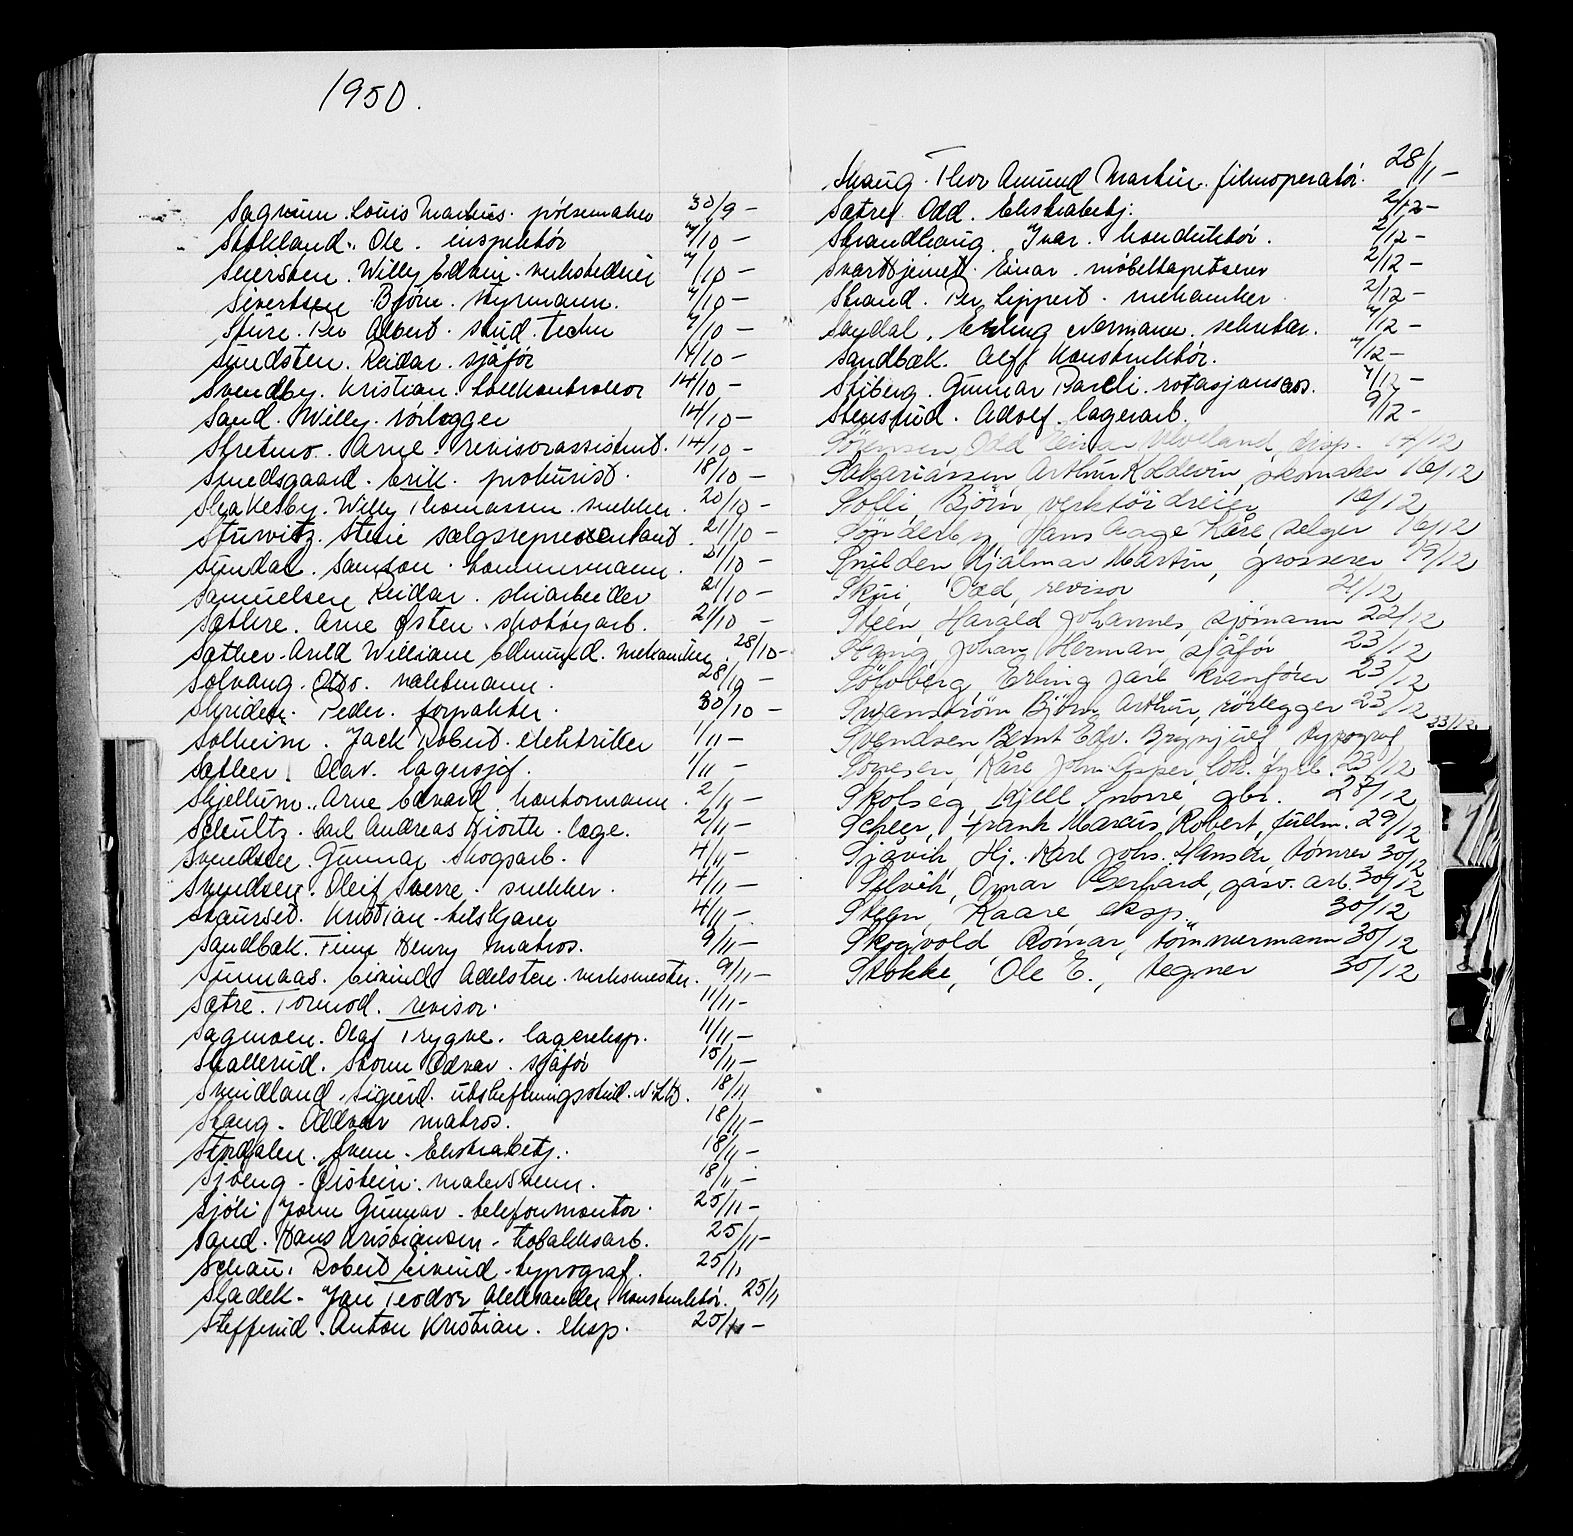 1950.
Sagmum. Louis Marius. pølsemaker 30/9 -
Stokland. Ole. inspektør 7/10 -
Willy Edvin. 7/10 -
Sivertsen Bjørn. styrmann. 7/10 -
Sture. Per Albert. stud. techn 7/10 -
Sundsten. Reidar. sjåfør 14/10 -
Svendby. Kristian. tollkontrollør 14/10 -
Sand. Willy. rørlegger 14/10 -
Arne. revisorassistent. 14/10 -
Smedsgaard. Erik. prokurist. 18/10 -
Willy Thomassen. snekker. 20/10 -
Sturvitz. Stene salgsrepresentant. 21/10 -
Sundal. Samson. tømmermann. 21/10 -
Samuelsen Reidar. skiarbeider 21/10 -
Sæthre. Arne Østen. skotøyarb. 21/10 -
Sæther. Arild William Edmund. mekaniker. 28/10 -
Solvang. Otto. vaktmann. 28/10 -
Peder. forpakter. 30/10 -
Solheim. Jack Robert. elektriker 1/11 -
Sæther. Olav. lagersjef. 1/11 -
Skjellum. Arne Edvard. kontormann. 2/11 -
Schultz. Carl Andreas Hiorth. lege. 2/11 -
Svendsen. Gunnar. skogsarb. 4/11 -
Svendsen. Oleif Sverre. snekker. 4/11 -
Staurset. Kristian. tilskjærer 4/11 -
Sandbæk. Finn Henry matros. 9/11 -
Sunnaas. Eivind Adelsten. verksmester. 9/11 -
Sætre. Tormod. revisor. 11/11 -
Sagmoen. Olaf Trygve. lagereksp. 11/11 -
Skallerud. Storm Odvar. sjåfør 15/11 -
Smidland. Sigurd. utskiftningsstud. N.L.H. 18/11
Stang. Oddvar matros. 18/11 -
Svein. Ekstrabetj. 18/11 -
Sjøeng. Øistein. malersvenn. 18/11 -
Sjøli John Gunnar. telefonmontør. 25/11 -
Sand. Hans Kristiansen. tobakksarb. 25/11 -
Schau. Robert Eivind. typograf. 25/11
Sladek. Jan Teodor Aleksander konstruktør. 25/11
Steffrud. Anton Kristian. eksp. 25/11 -
Skaug. Thor Amund Martin. filmoperatør. 28/11 -
Sætref. Odd. Ekstrabetj. 2/12 -
Strandhaug. Ivar. konduktør. 2/12 -
Svarttjernet. Einar. møbeltapetserer 2/12 -
Strand. Per Lippert. mekaniker 2/12 -
Sandal. Erling Normann. sekretær. 7/12 -
Sandbæk. Alff konstruktør. 7/12 -
Stiberg. Gunnar Pareli. rotasjonsass. 7/12 -
Stensrud. Adolf. lagerarb. 9/12 -
Sørensen, Odd Einar Cleveland, disp. 14/12
Sakariassen Arthur Koldevin, skomaker 16/12
Solli, Bjørn, verktøidreier 16/12
Sönderby, Hans Aage Kåre, selger 16/12
Snilden, Hjalmar Martin, grosserer 19/12
Skui, Odd, revisor 21/12
Steen, Harald Johannes, sjømann 22/12
Stang, Johan Herman sjåfør 23/12
Sølvberg, Erling Jarl kranfører 23/12
Svanstrøm Bjørn Arthur, rörlegger 23/12
Svendsen Bernt Edv. Brynjulf, typograf 23/12
Kåre John lok. fyrb. 23/12
Skolseg, Kjell Snorre, gbr. 28/12
Scheer, Frank Marcus Robert, fullm. 29/12
Sjåvik, Hj. Karl Johs. Hansen, tømrer 30/12
Selvik, Omar Gerhard, gasv. arb. 30/12
Steen, Kaare eksp. 30/12
Skogvold Romar, tömmermann 30/12
Stokke, Ole E., tegner 30/12